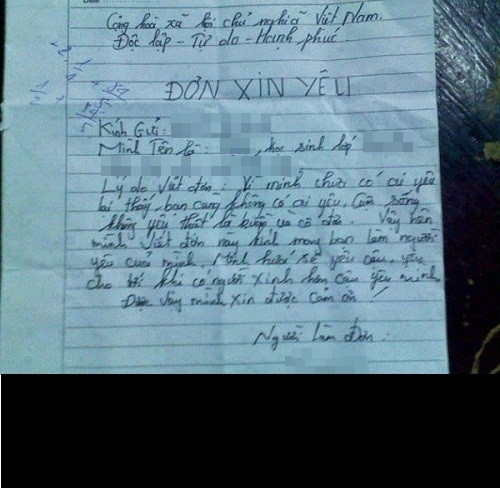 Cộng hoà xã hội chủ nghĩa Việt Nam.
Độc lập - Tự do - Hạnh phúc.
ĐƠN XIN YÊU
Kính Gửi:
Mình Tên là: , học sinh lớp
Lý do viết đơn: Vì mình chưa có ai yêu
lại thấy bạn cũng không có ai yêu. Cuộc sống
không yêu thật là buồn và cô đơn. Vậy nên
mình viết đơn này kính mong bạn làm người
yêu của mình. Mình hứa sẽ yêu cậu, yêu
cho tới khi có người xinh hơn cậu yêu mình
Được vậy mình xin được cảm ơn!
Người làm Đơn.